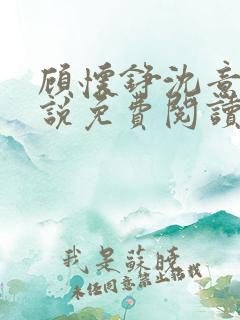 顾懷錚沈意
說免費閱讀
我是蘇曉
未经同意禁止搭载